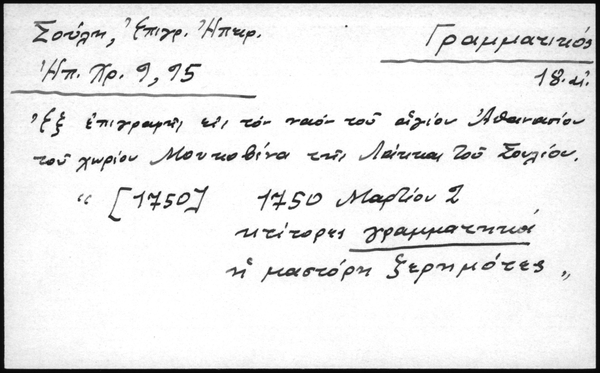 Σούλη, Ἐπιγρ. Ἠπειρ.
Γραμματικός
Ἠπ. Χρ. 9, 95
18. αἰ.
Ἐξ ἐπιγραφῆς εἰς τὸν ναὸν τοῦ ἁγίου Ἀθανασίου
τοῦ χωρίου Μουκοβίνα τῆς Λάκκας τοῦ Σουλίου.
“ [1750] 1750 Μαρτίου 2
κτίτορες γραμματηκά
ἡ μαστόρη ξερημότες „